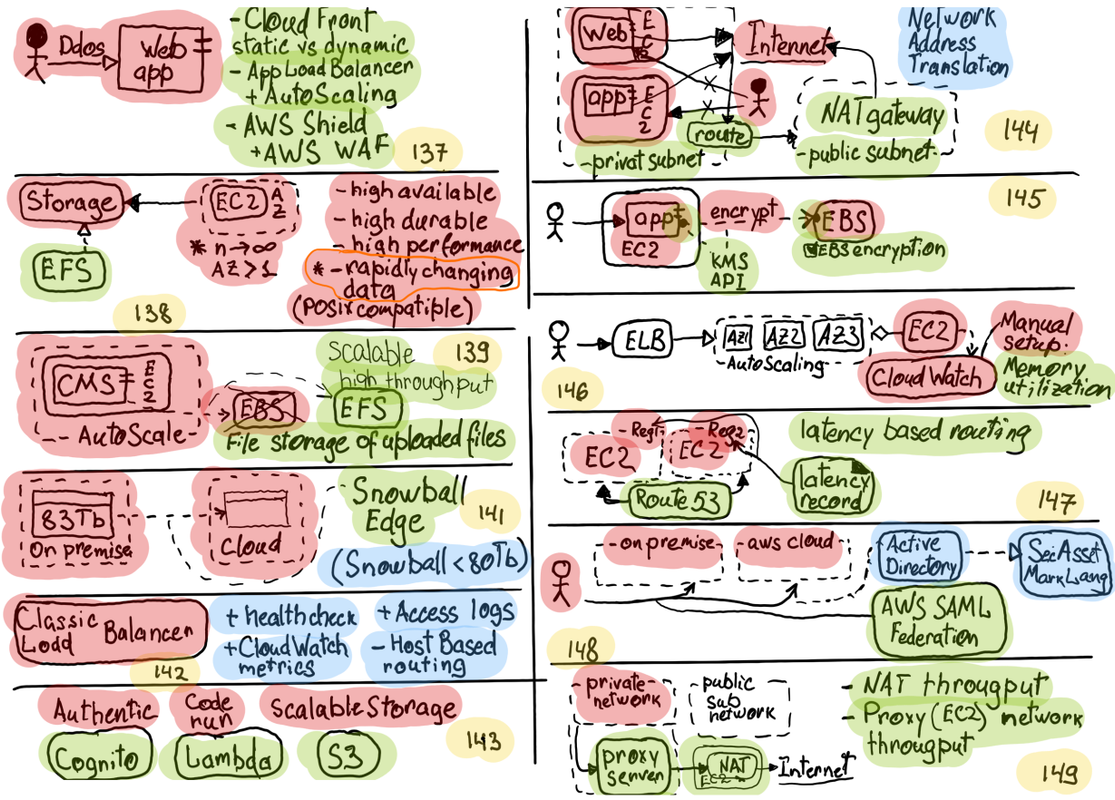 Ddos
Web
app
- Cloud Front
static vs dynamic
- App Load Balancer
+ AutoScaling
- AWS Shield
+ AWS WAF
137
Storage
EC2
AZ
EFS
* n→∞
AZ>1
- high available
- high durable
- high performance
* - rapidly changing
data
(POSIX compatible)
138
CMS
EC2
AutoScale
EBS
EFS
Scalable
high throughput
File storage of uploaded files
139
83Tb
On premise
Cloud
Snowball
Edge
(Snowball < 80Tb)
141
Classic
Load Balancer
+ healthcheck
+ CloudWatch
metrics
+ Access logs
- Host Based
routing
142
Authentic
Code
run
Scalable Storage
Cognito
Lambda
S3
143
Web
EC2
app
EC2
- privat subnet -
Internet
route
NAT gateway
- public subnet -
Network
Address
Translation
144
app
EC2
encrypt
EBS
KMS
API
EBS encryption
145
ELB
AZ1
AZ2
AZ3
AutoScaling
EC2
Cloud Watch
Manual
setup:
Memory
utilization
146
- Reg1
EC2
- Reg2
EC2
Route 53
latency
record
latency based routing
147
- on premise
- aws cloud
Active
Directory
Sec Asset
Mark Lang
AWS SAML
Federation
148
private
network
public
sub
network
proxy
server
NAT
EC2
Internet
- NAT througput
- Proxy (EC2) network
througput
149